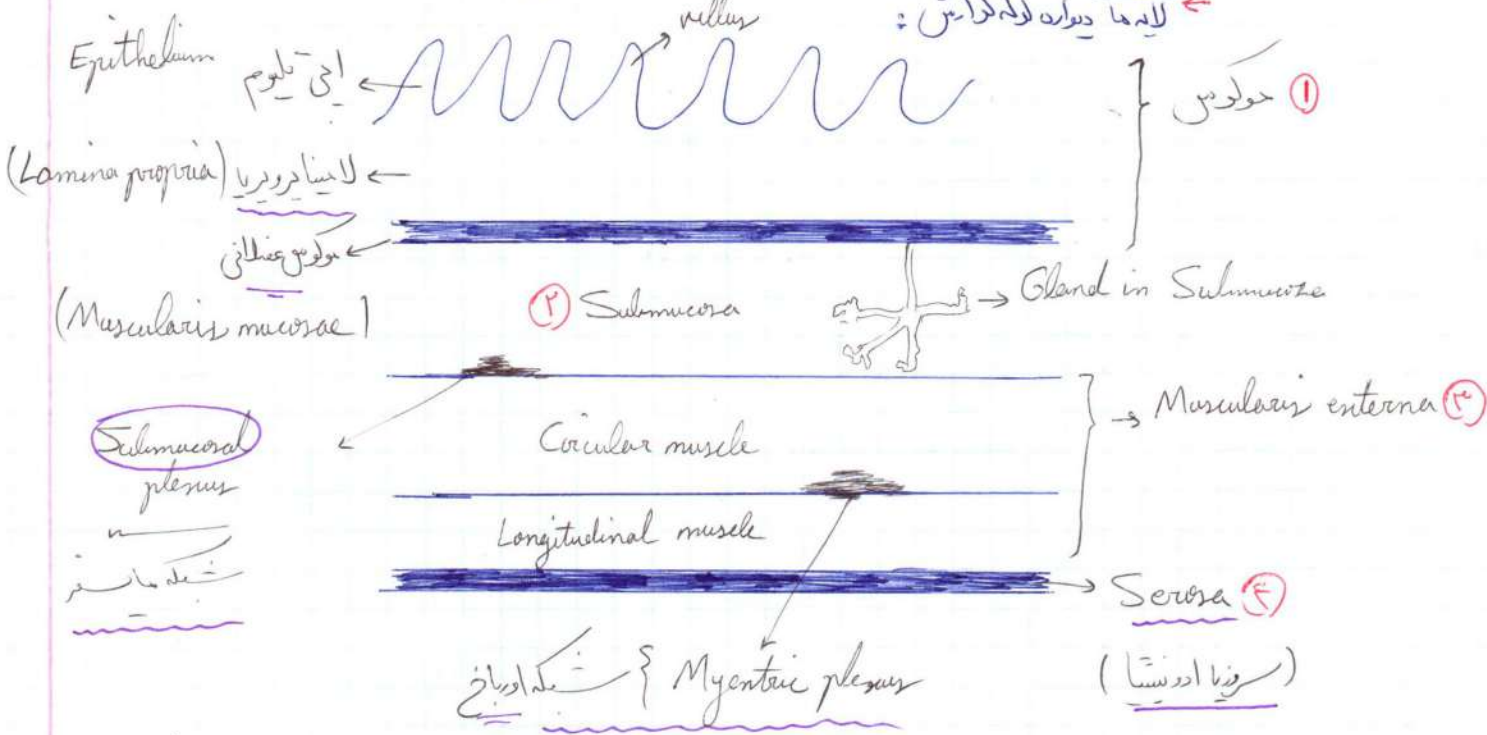 لایه ها دیواره لوله گوارش :
villus
Epithelium
اپی تلیوم
موکوس ①
(Lamina propria) لامینا پروپریا
موکوس عضلانی
(Muscularis mucosae)
② Submucosa
Gland in Submucosa
Muscularis externa ③
Submucosal
plexus
شبکه مایسنر
Circular muscle
Longitudinal muscle
Serosa ④
(سروز یا ادونتیشیا)
شبکه اورباخ } Myentric plexus